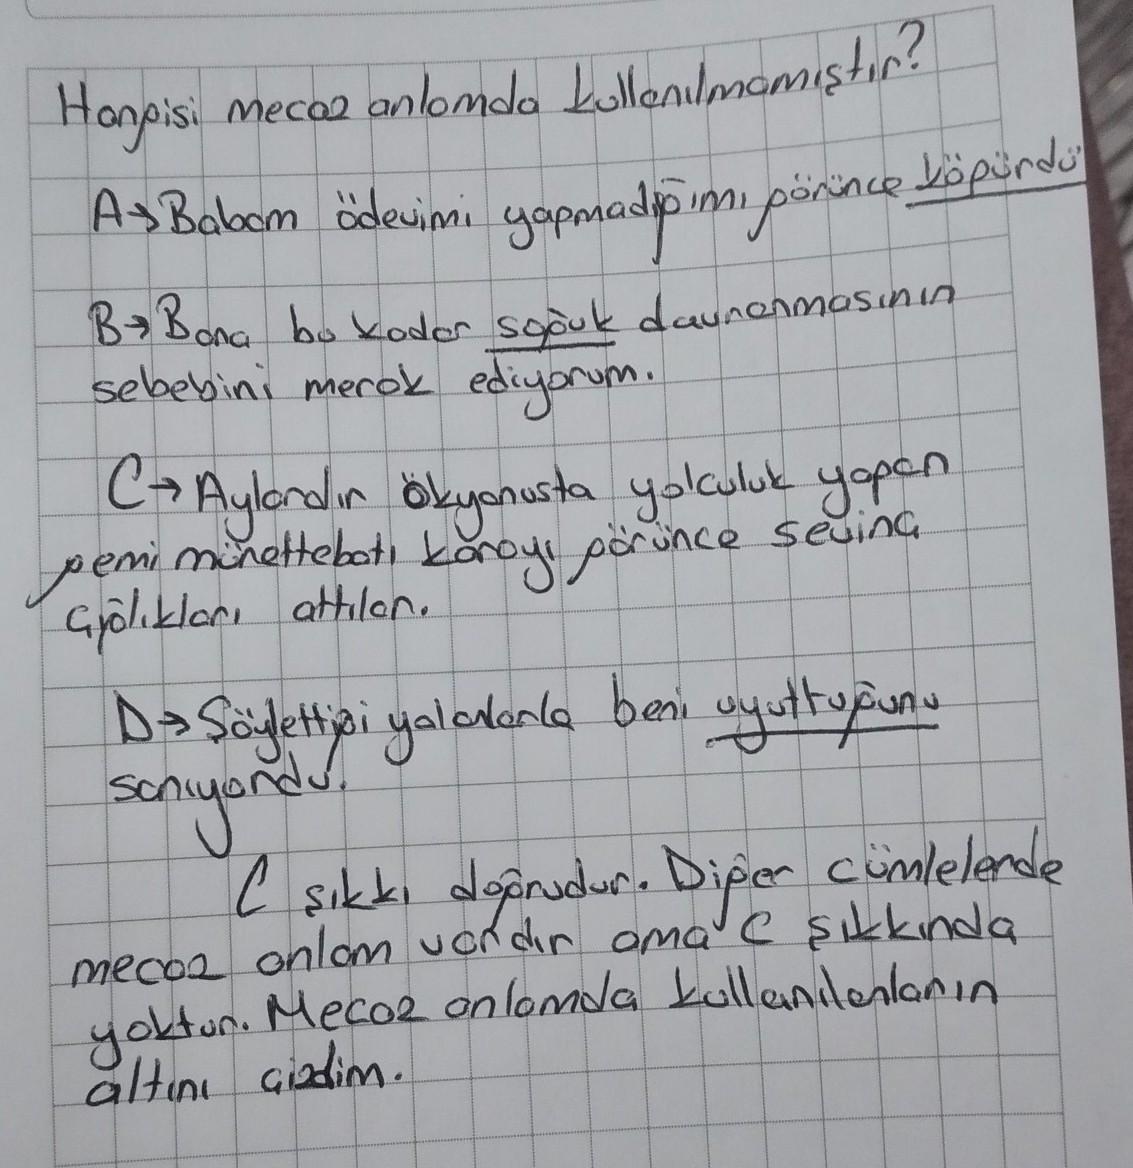 Hangisi mecaz anlamda kullanılmamıştır?
A→ Babam ödevimi yapmadığımı görünce köpürdü
B→ Bana bu kadar sğouk davranmasının
sebebini merak ediyorum.
C→ Aylardır okyanusta yolculuk yapan
gemi mürettebatı karayı görünce sevinç
çığlıkları attılar.
D→ Söylettiği yalanlarla beni uyuttuğunu
sanıyordu.
C şıkkı doğrudur. Diğer cümlelerde
mecaz anlam vardır ama C şıkkında
yoktur. Mecaz anlamda kullanılanların
altını çizdim.